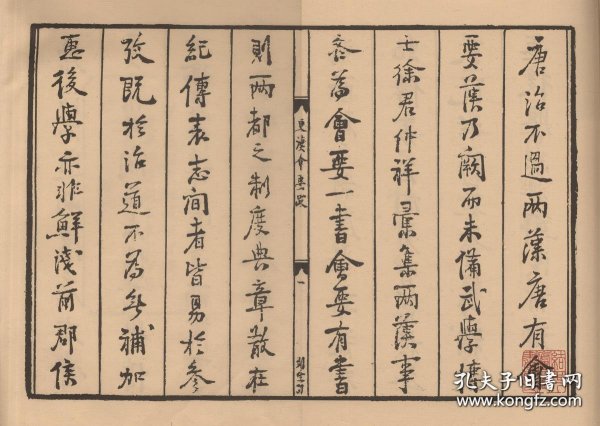 唐治不過兩漢唐有會
要漢乃闕而未備武學博
士徐君仲祥彙集兩漢事
為會要一書會要有書
東漢會要跋
一
則兩都之制度典章散在
紀傳表志間者皆易於參
攷既於治道不為無補加
惠後學亦非鮮淺前郡侯
孔夫子旧书网
www.kongfz.com